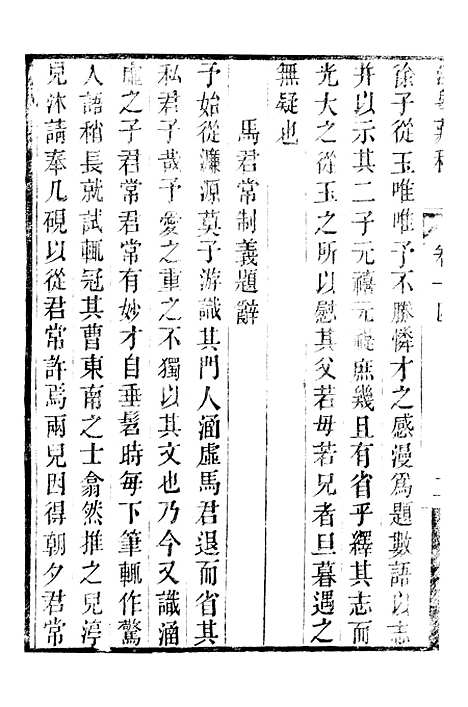 徐子從玉唯唯予不勝憐才之感漫爲題數語以志
并以示其二子元禧元礎庶幾且有省乎繹其志而
光大之從玉之所以慰其父若毋若兄者旦暮遇之
無疑也
馬君常制義題辭
予始從濂源莫子游識其門人涵虛馬君退而省其
私君子哉予愛之重之不獨以其文也乃今又識涵
虛之子君常君常有妙才自垂髫時每下筆輒作驚
人語稍長就試輒冠其曹東南之士翕然推之兒渟
兒沐請奉几硯以從君常許焉兩兒因得朝夕君常